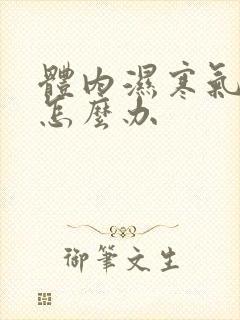 體內濕寒氣
怎麼办
御筆文生